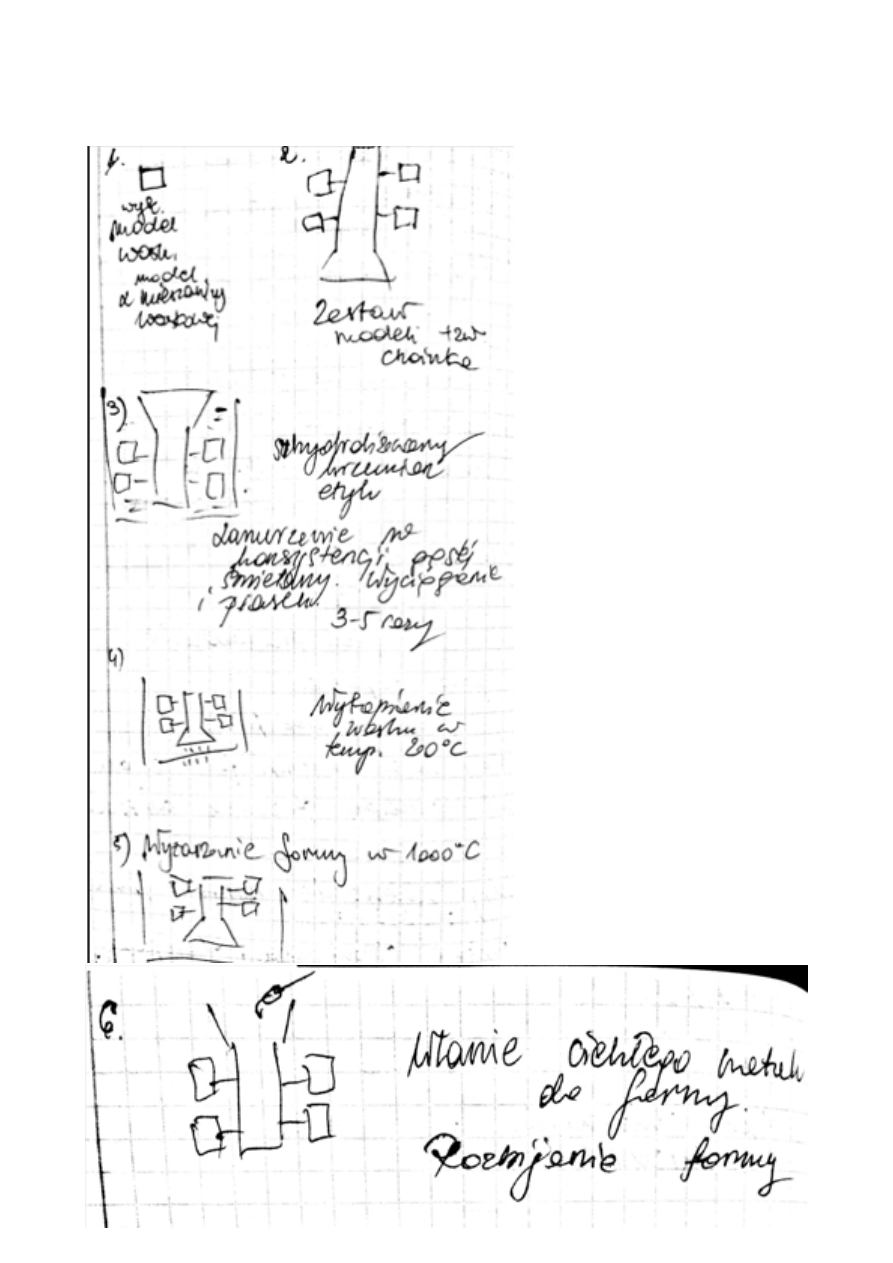 1.
wyk.
model
wosk.
model
z mieszaniny
woskowej
2.
Zestaw
modeli tzw
choinka
3)
zhydrolizowany
krzemian
etylu
Zanurzenie w
konsystencji gęstej
śmietany. Wyciągnięcie
i piasek.
3-5 razy
4)
Wytopienie
wosku w
temp. 200°C
5) Wyżarzanie formy w 1000°C
6.
Wlanie ciekłego metalu
do formy.
Rozbijanie formy